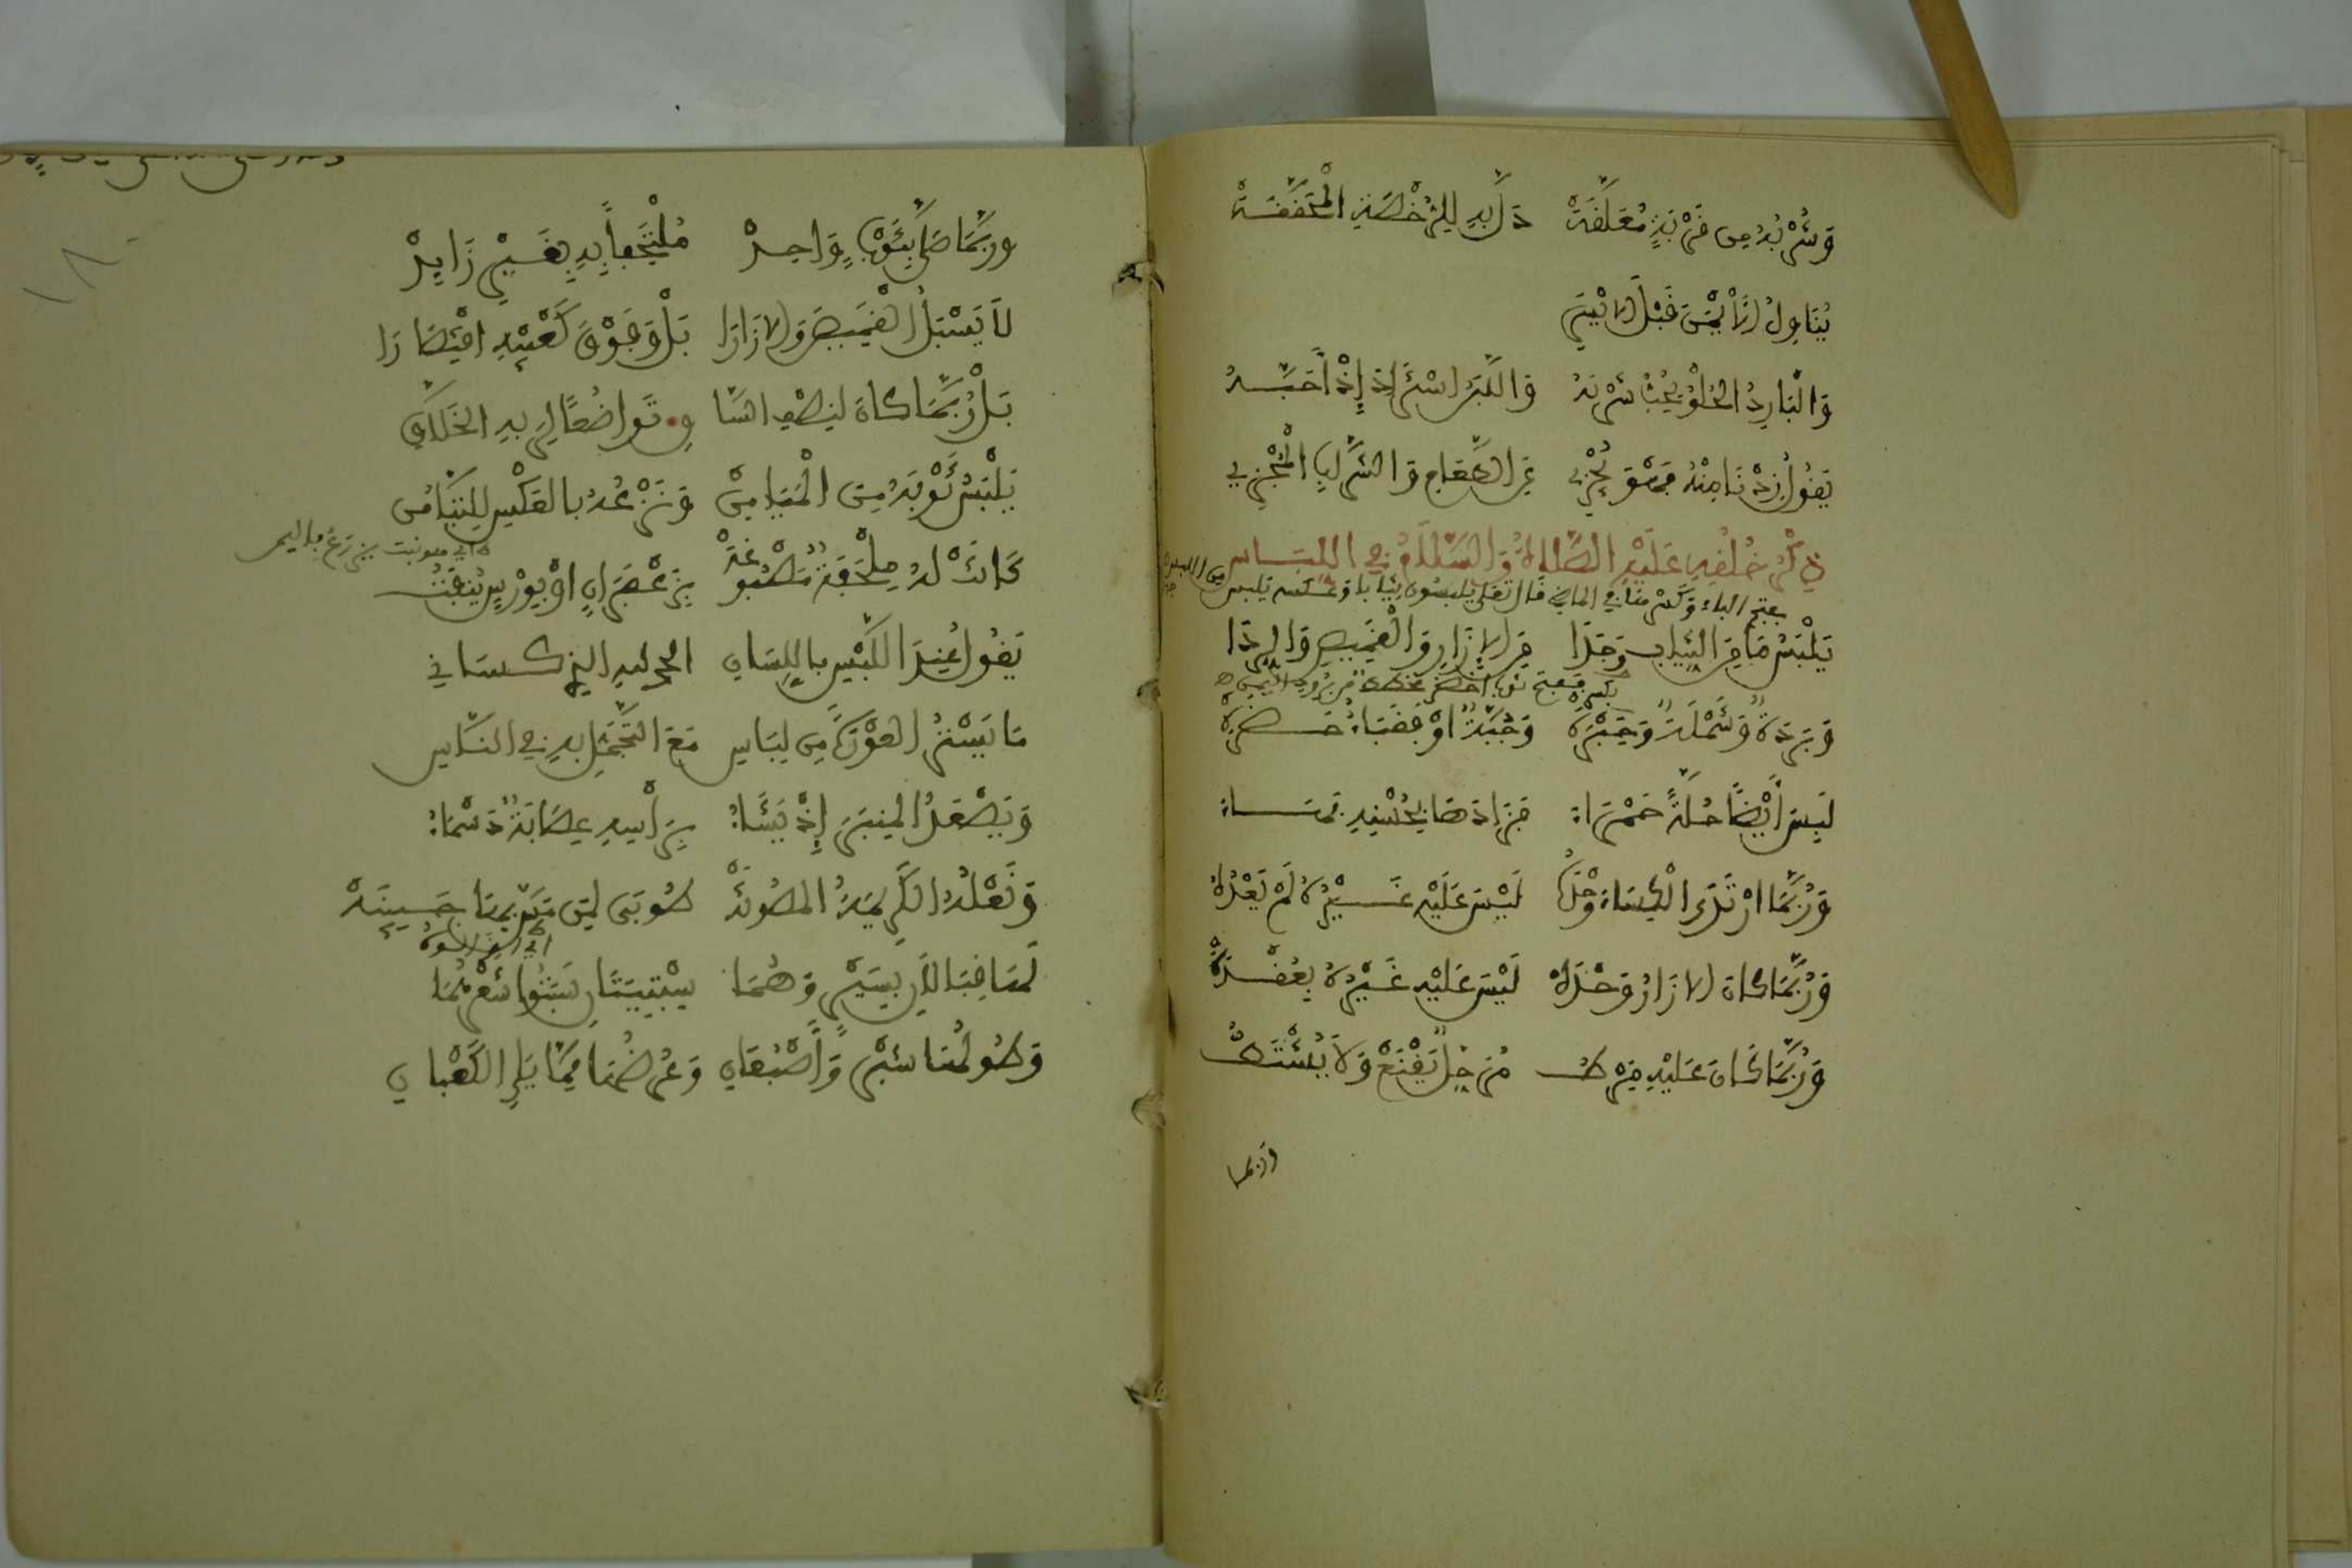 وَشُرْبُهُ مِن قِرْبَةٍ مُعَلَّقَةْ دَلَّ بِهِ لِلرُّخْصَةِ الْمُحَقَّقَةْ
يُنَاوِلُ الْأَيْمَنَ قَبْلَ الْأَيْسَرِ
وَالْبَارِدُ الْحُلْوُ يُحِبُّ شُرْبَهُ وَاللَّبَنُ اسْتَزَادَ إِذْ أَحَبَّهُ
يَقُولُ زِدْنَا مِنْهُ فَهْوَ يُجْزِي عَنِ الطَّعَامِ وَالشَّرَابِ الْمُجْزِي
ذِكْرُ خُلُقِهِ عَلَيْهِ الصَّلَاةُ وَالسَّلَامُ فِي اللِّبَاسِ
بفتح الباء وكسرها في الماضي قال تعلى يلبسون ثيابا وعكسه يلبس من اللبس
يَلْبَسُ مَا مِنَ الثِّيَابِ وَجَدَا مِنَ الْإِزَارِ وَالْقَمِيصِ وَالرِّدَا
بكسر ففتح ثوب اخضر مخطط من برود اليمن
وَبُرْدَةٌ وَشَمْلَةٌ وَحِبَرَةْ وَجُبَّةٌ أَوْ فَقَبَاءٌ حَضَرَهْ
لَبِسَ أَيْضًا حُلَّةً حَمْرَاءَ فَزَادَهَا بِحُسْنِهِ بَهَاءَ
وَرُبَّمَا ارْتَدَى الْكِسَاءَ وَحْدَهُ لَيْسَ عَلَيْهِ غَيْرُهُ لَمْ يَعْدُهُ
وَرُبَّمَا كَانَ الْإِزَارُ وَحْدَهْ لَيْسَ عَلَيْهِ غَيْرُهُ بِعُقْدَةْ
وَرُبَّمَا كَانَ عَلَيْهِ مِرْطُ مُرَحَّلٌ يَقْنَعْ وَلَا يَشْتَطُّ
وربما
وربَّمَا صَلَّى بِثَوْبٍ وَاحِدْ مُلْتَحِفًا بِهِ بِغَيْرِ زَايِدْ
لَا يُسْبِلُ الْقَمِيصَ وَالْإِزَارَا بَلْ فَوْقَ كَعْبَيْهِ اقْتِصَارَا
بَلْ رُبَّمَا كَانَ لِنِصْفِ السَّاقِ تَوَاضُعًا لِرَبِّهِ الْخَلَّاقِ
يَلْبَسُ ثَوْبَهُ مِنَ الْمَيَامِنْ وَنَزْعُهُ بِالْعَكْسِ لِلتَّيَامُنْ
كَانَتْ لَهُ مِلْحَفَةٌ مَصْبُوغَةْ بِزَعْفَرَانٍ أَوْ بِوَرْسٍ يُنْبِتُ
يَقُولُ عِنْدَ اللُّبْسِ بِاللِّسَانِ الحمد لله الذي كساني
مَا يَسْتُرُ الْعَوْرَةَ مِن لِبَاسِ مَعَ التَّجَمُّلِ بِهِ فِي النَّاسِ
وَيَصْعَدُ الْمِنبَرَ إِذْ يَشَاءُ بِرَأْسِهِ عِصَابَةٌ دَسْمَاءُ
وَنَعْلُهُ الْكَرِيمَةُ الْمَصُونَةْ طُوبَى لِمَن مَسَّ بِهَا جَبِينَهْ
لَهَا قِبَالَانِ بِسَيْرٍ وَهُمَا سِبْتِيَّتَانِ سَبَتُوا شَعْرَهُمَا
وَطُولُهَا شِبْرٌ وَأُصْبُعَانِ وَعَرْضُهَا مِمَّا يَلِي الْكَعْبَانِ